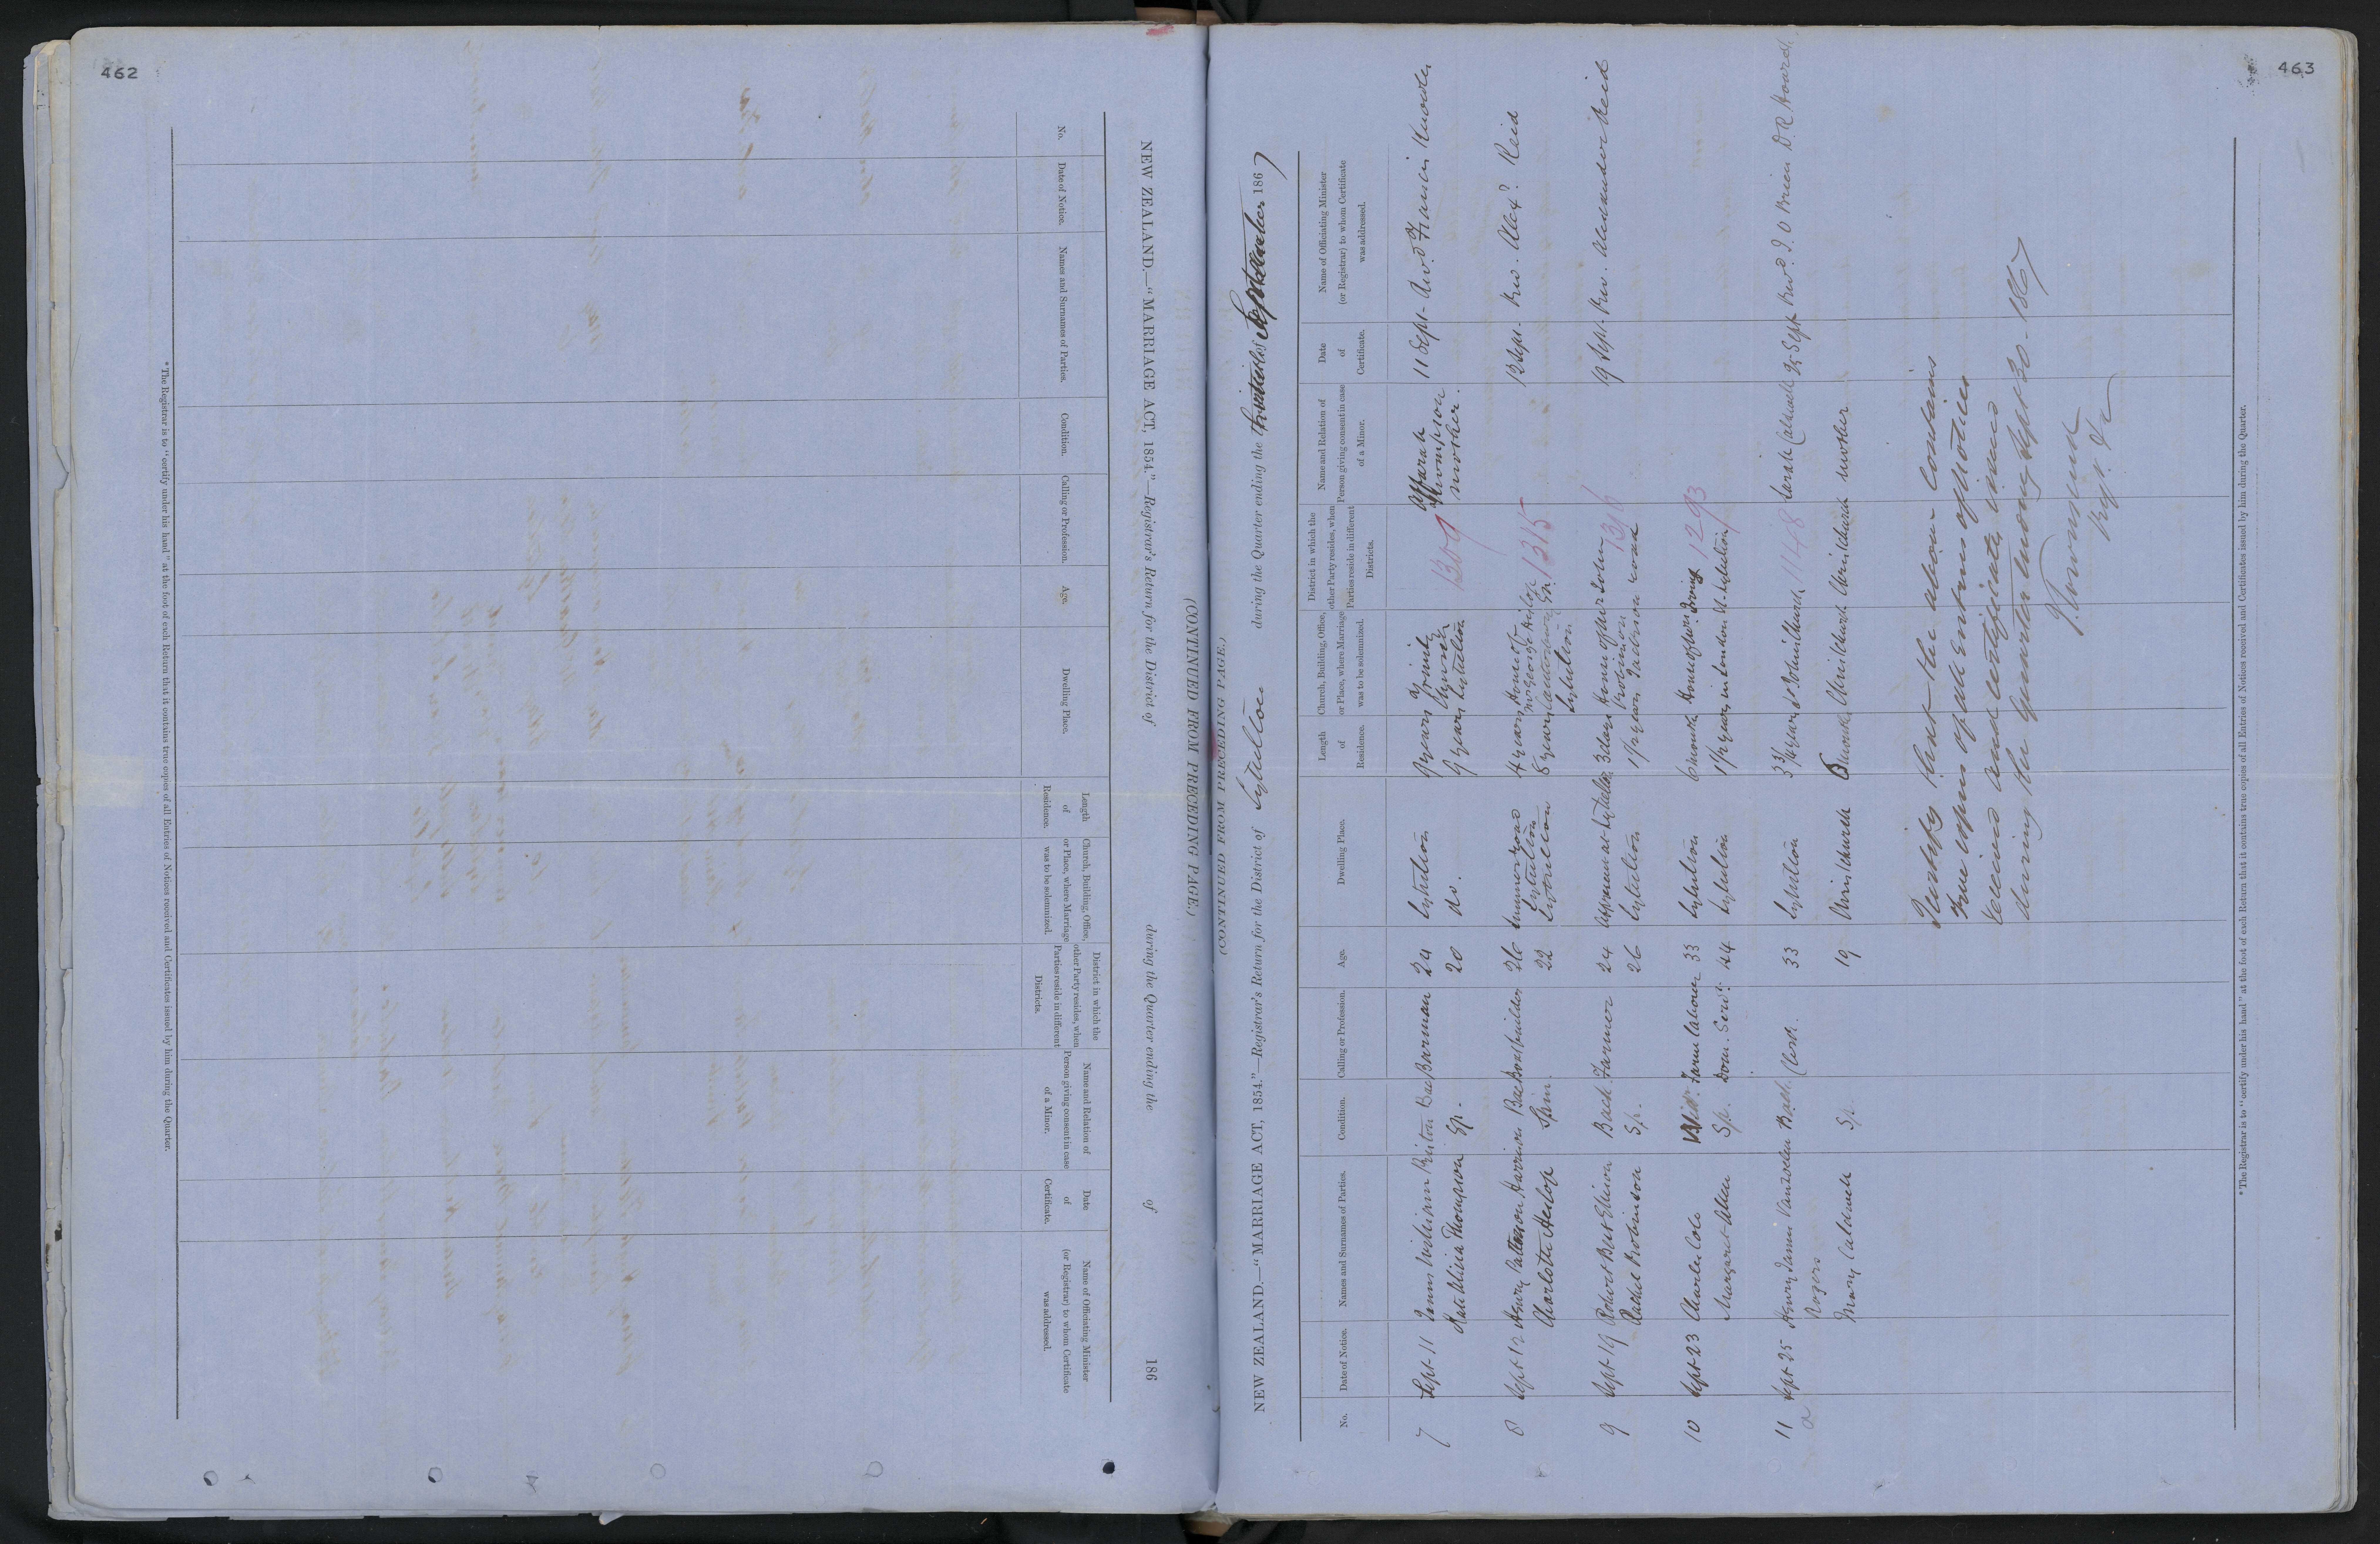 462
(CONTINUED FROM PRECEDING PAGE.)
NEW ZEALAND.—"MARRIAGE ACT, 1854."—Registrar's Return for the District of during the Quarter ending the of 186
No.
Date of Notice.
Names and Surnames of Parties.
Condition.
Calling or Profession.
Age.
Dwelling Place.
Length of Residence.
Church, Building, Office, or Place, where Marriage was to be solemnized.
District in which the other Party resides, when Parties reside in different Districts.
Name and Relation of Person giving consent in case of a Minor.
Date of Certificate.
Name of Officiating Minister (or Registrar) to whom Certificate was addressed.
*The Registrar is to "certify under his hand" at the foot of each Return that it contains true copies of all Entries of Notices received and Certificates issued by him during the Quarter.
463
(CONTINUED FROM PRECEDING PAGE.)
NEW ZEALAND.—"MARRIAGE ACT, 1854."—Registrar's Return for the District of Lyttelton during the Quarter ending the September 1867
No.
Date of Notice.
Names and Surnames of Parties.
Condition.
Calling or Profession.
Age.
Dwelling Place.
Length of Residence.
Church, Building, Office, or Place, where Marriage was to be solemnized.
District in which the other Party resides, when Parties reside in different Districts.
Name and Relation of Person giving consent in case of a Minor.
Date of Certificate.
Name of Officiating Minister (or Registrar) to whom Certificate was addressed.
7 Sept 11 James William Bac Barman 24 Lyttelton 9 years Trinity Church 1309 Sarah Thompson mother. 11 Sept. Revd. Francis Knowles
Thompson Sp. 20 do. 9 years Lyttelton
8 Sept 12 Henry Patterson Harrison Bac Boatbuilder 26 Lyttelton 4 years House of Mr George 1315 12 Sept. Rev. Alexr. Reid
Charlotte Heslop Spin. 22 8 years Lyttelton
9 Sept 19 Robert Burt Ellison Bach Farmer 24 at Lyttelton 3 days House of Mr John Robinson 1316 19 Sept. Rev. Alexander Reid
Rachel Robinson Sp. 26 Lyttelton 1½ years Jackson road
10 Sept 23 Charles Cole Wid. Farm labourer 33 Lyttelton 6 months House of Irving 1293
Margaret Allen Sp. Dom. Servt. 44 Lyttelton 1½ years in London St. Lyttelton
11 Sept 25 Henry James Vanzelen Rogers Bach. Clerk. 33 Lyttelton St Johns Church 1148 Sarah Caldwell 25 Sept Revd. O Brien D. R. Hoare
Mary Caldwell Sp. 19 Christchurch months Christchurch Christchurch mother
I certify that the above contains
true copies of all Entries of notices
received and certificates issued
during the Quarter ending Sept 30. 1867
*The Registrar is to "certify under his hand" at the foot of each Return that it contains true copies of all Entries of Notices received and Certificates issued by him during the Quarter.